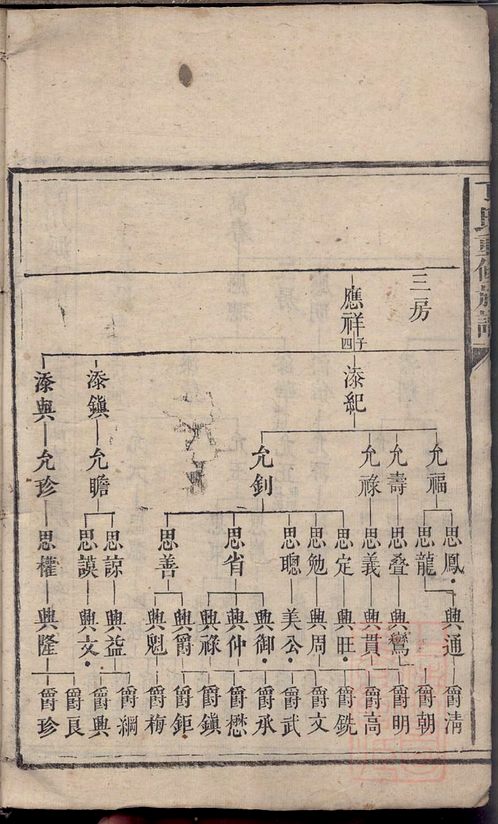 氏重修族譜
三房
應祥 四子
添紀
添鎮
添與
允福
允壽
允祿
允釗
允瞻
允珍
思鳳
思龍
思叠
思義
思定
思勉
思聰
思省
思善
思諒
思謨
思權
興通
興鸞
興貫
興旺
興周
美公
興御
興仲
興祿
興爵
興魁
興益
興文
興隆
爵清
爵朝
爵明
爵高
爵銑
爵文
爵武
爵承
爵懋
爵鎮
爵鉅
爵梅
爵綱
爵興
爵良
爵珍